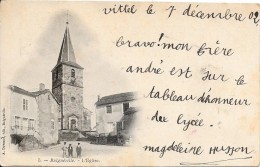 vittel le 7 décembre 02
bravo! mon frère
andré est sur le
tableau d'honneur
du lycée.
magdeleine husson
5. - Bulgnéville - L'Eglise.